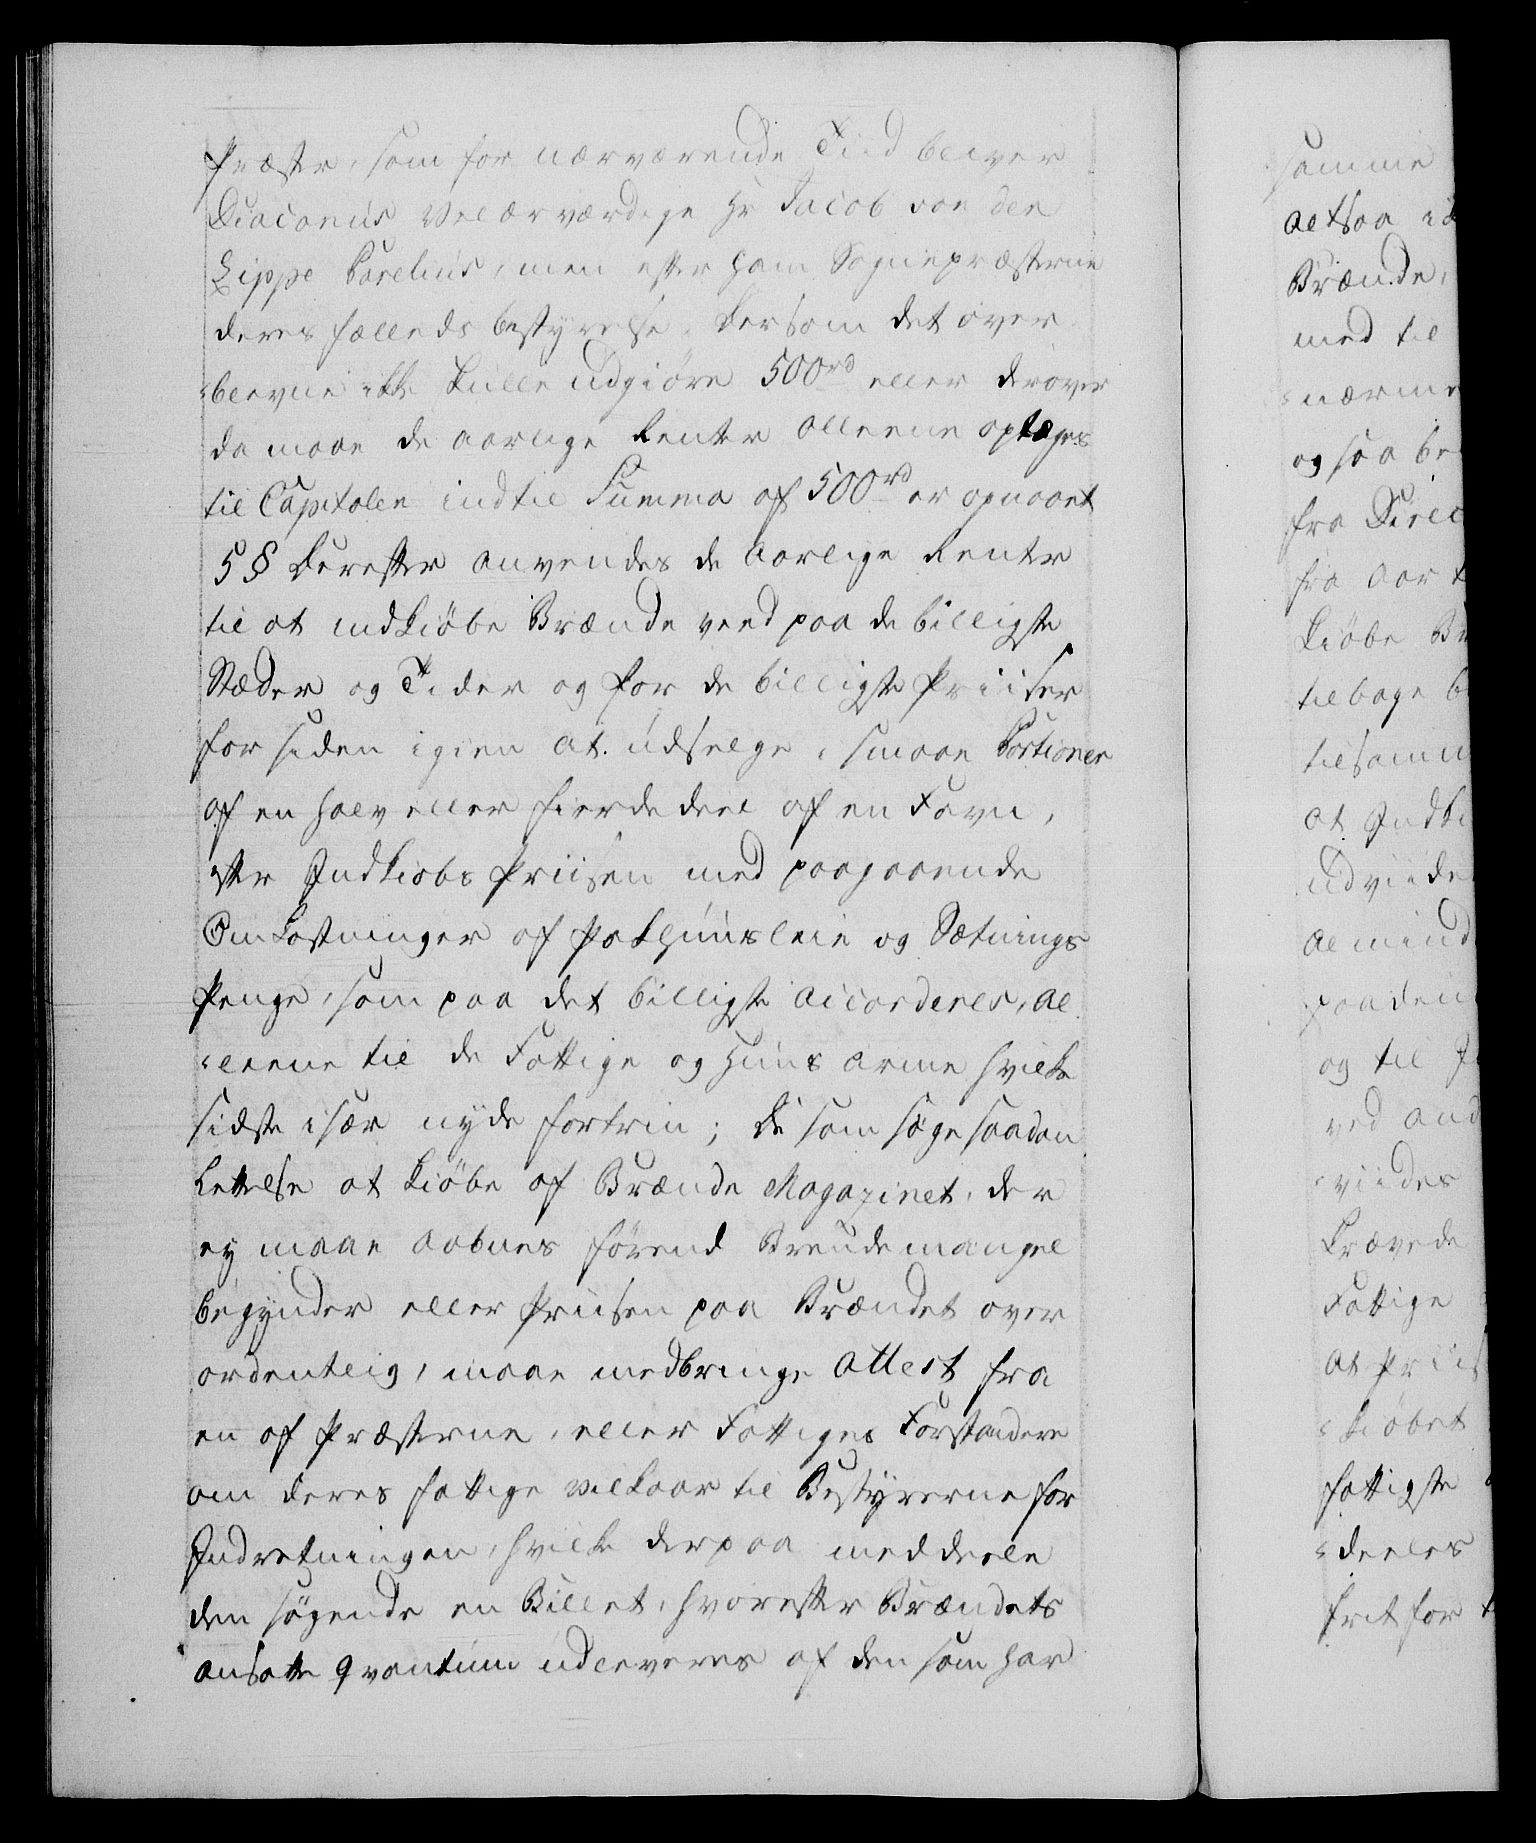 Præster, som for nærværende Tiid bliver
Diaconus Velærværdige Hr Jacob von der
Lippe Parelius, men efter ham Sognepræsterne
deres fælleds bestyrelse. Dersom det over
blevne ikke skulle udgiøre 500rd eller derover
da maae de aarlige Renter alleene oplæges
til Capitalen indtil Summa af 500rd er opnaaet
5§ Derefter anvendes de aarlige Renter
til at indkiøbe Brænde veed paa de billigste
Stæder og Tider og for de billigste Priiser
for siden igien at udselge i smaae Portioner
af en halv eller fierdedeel af en Favn,
efter Indkiøbs Priisen med paagaaende
Omkostninger af Pakhuusleie og Sætnings
Penge, som paa det billigste accorderes, al
leene til de Fattige og Huus arme hvilke
sidste især nyde fortrin; De som søge saadan
Lettelse at kiøbe af Brænde Magazinet, der
ey maae aabnes førend Brændemangel
begynder eller Priisen paa Brændet over
ordentlig, maae medbringe Attest fra
en af Præsterne, eller Fattiges Forstandere
om deres fattige vilkaar til Bestyrerne for
Indretningen, hvilke derpaa meddeele
den søgende en Billet, hvorefter Brændets
ansatte qvantum udleveres af den som har
samme
altsaa i
Brænde,
med til
nærme
og saa be
fra Direc
fra Aar t
kiøbe Br
tilbage b
tilsamm
at Indki
udviide
almind
paa den
og til I
ved and
viides
krævede
Fattige
at Priis
kiøbet
fattigste
deeles
frit for t